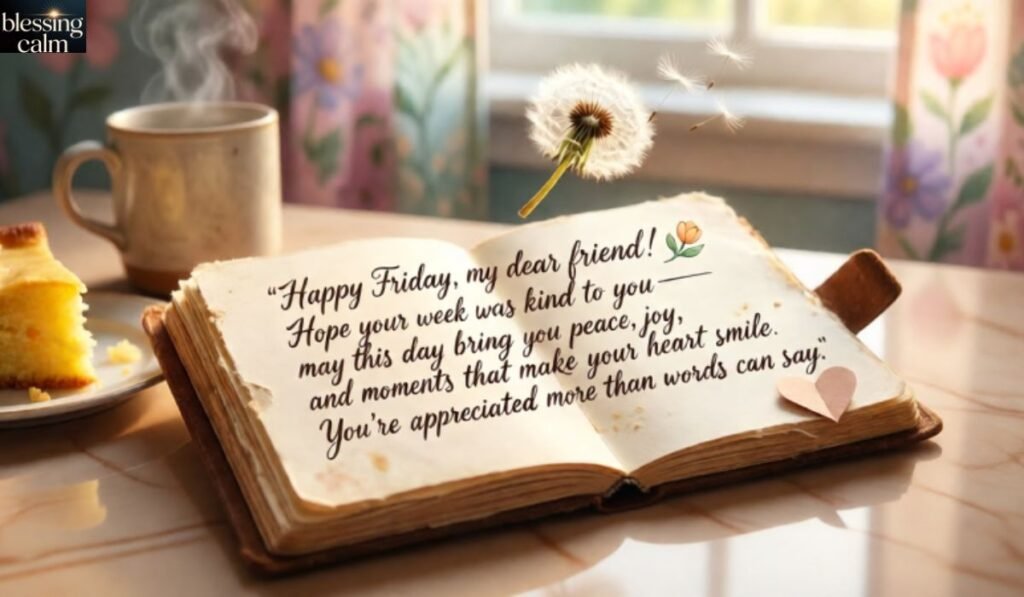 blessing
calm
“Happy Friday, my dear friend!
Hope your week was kind to you—
may this day bring you peace, joy,
and moments that make your heart smile.
You’re appreciated more than words can say.”